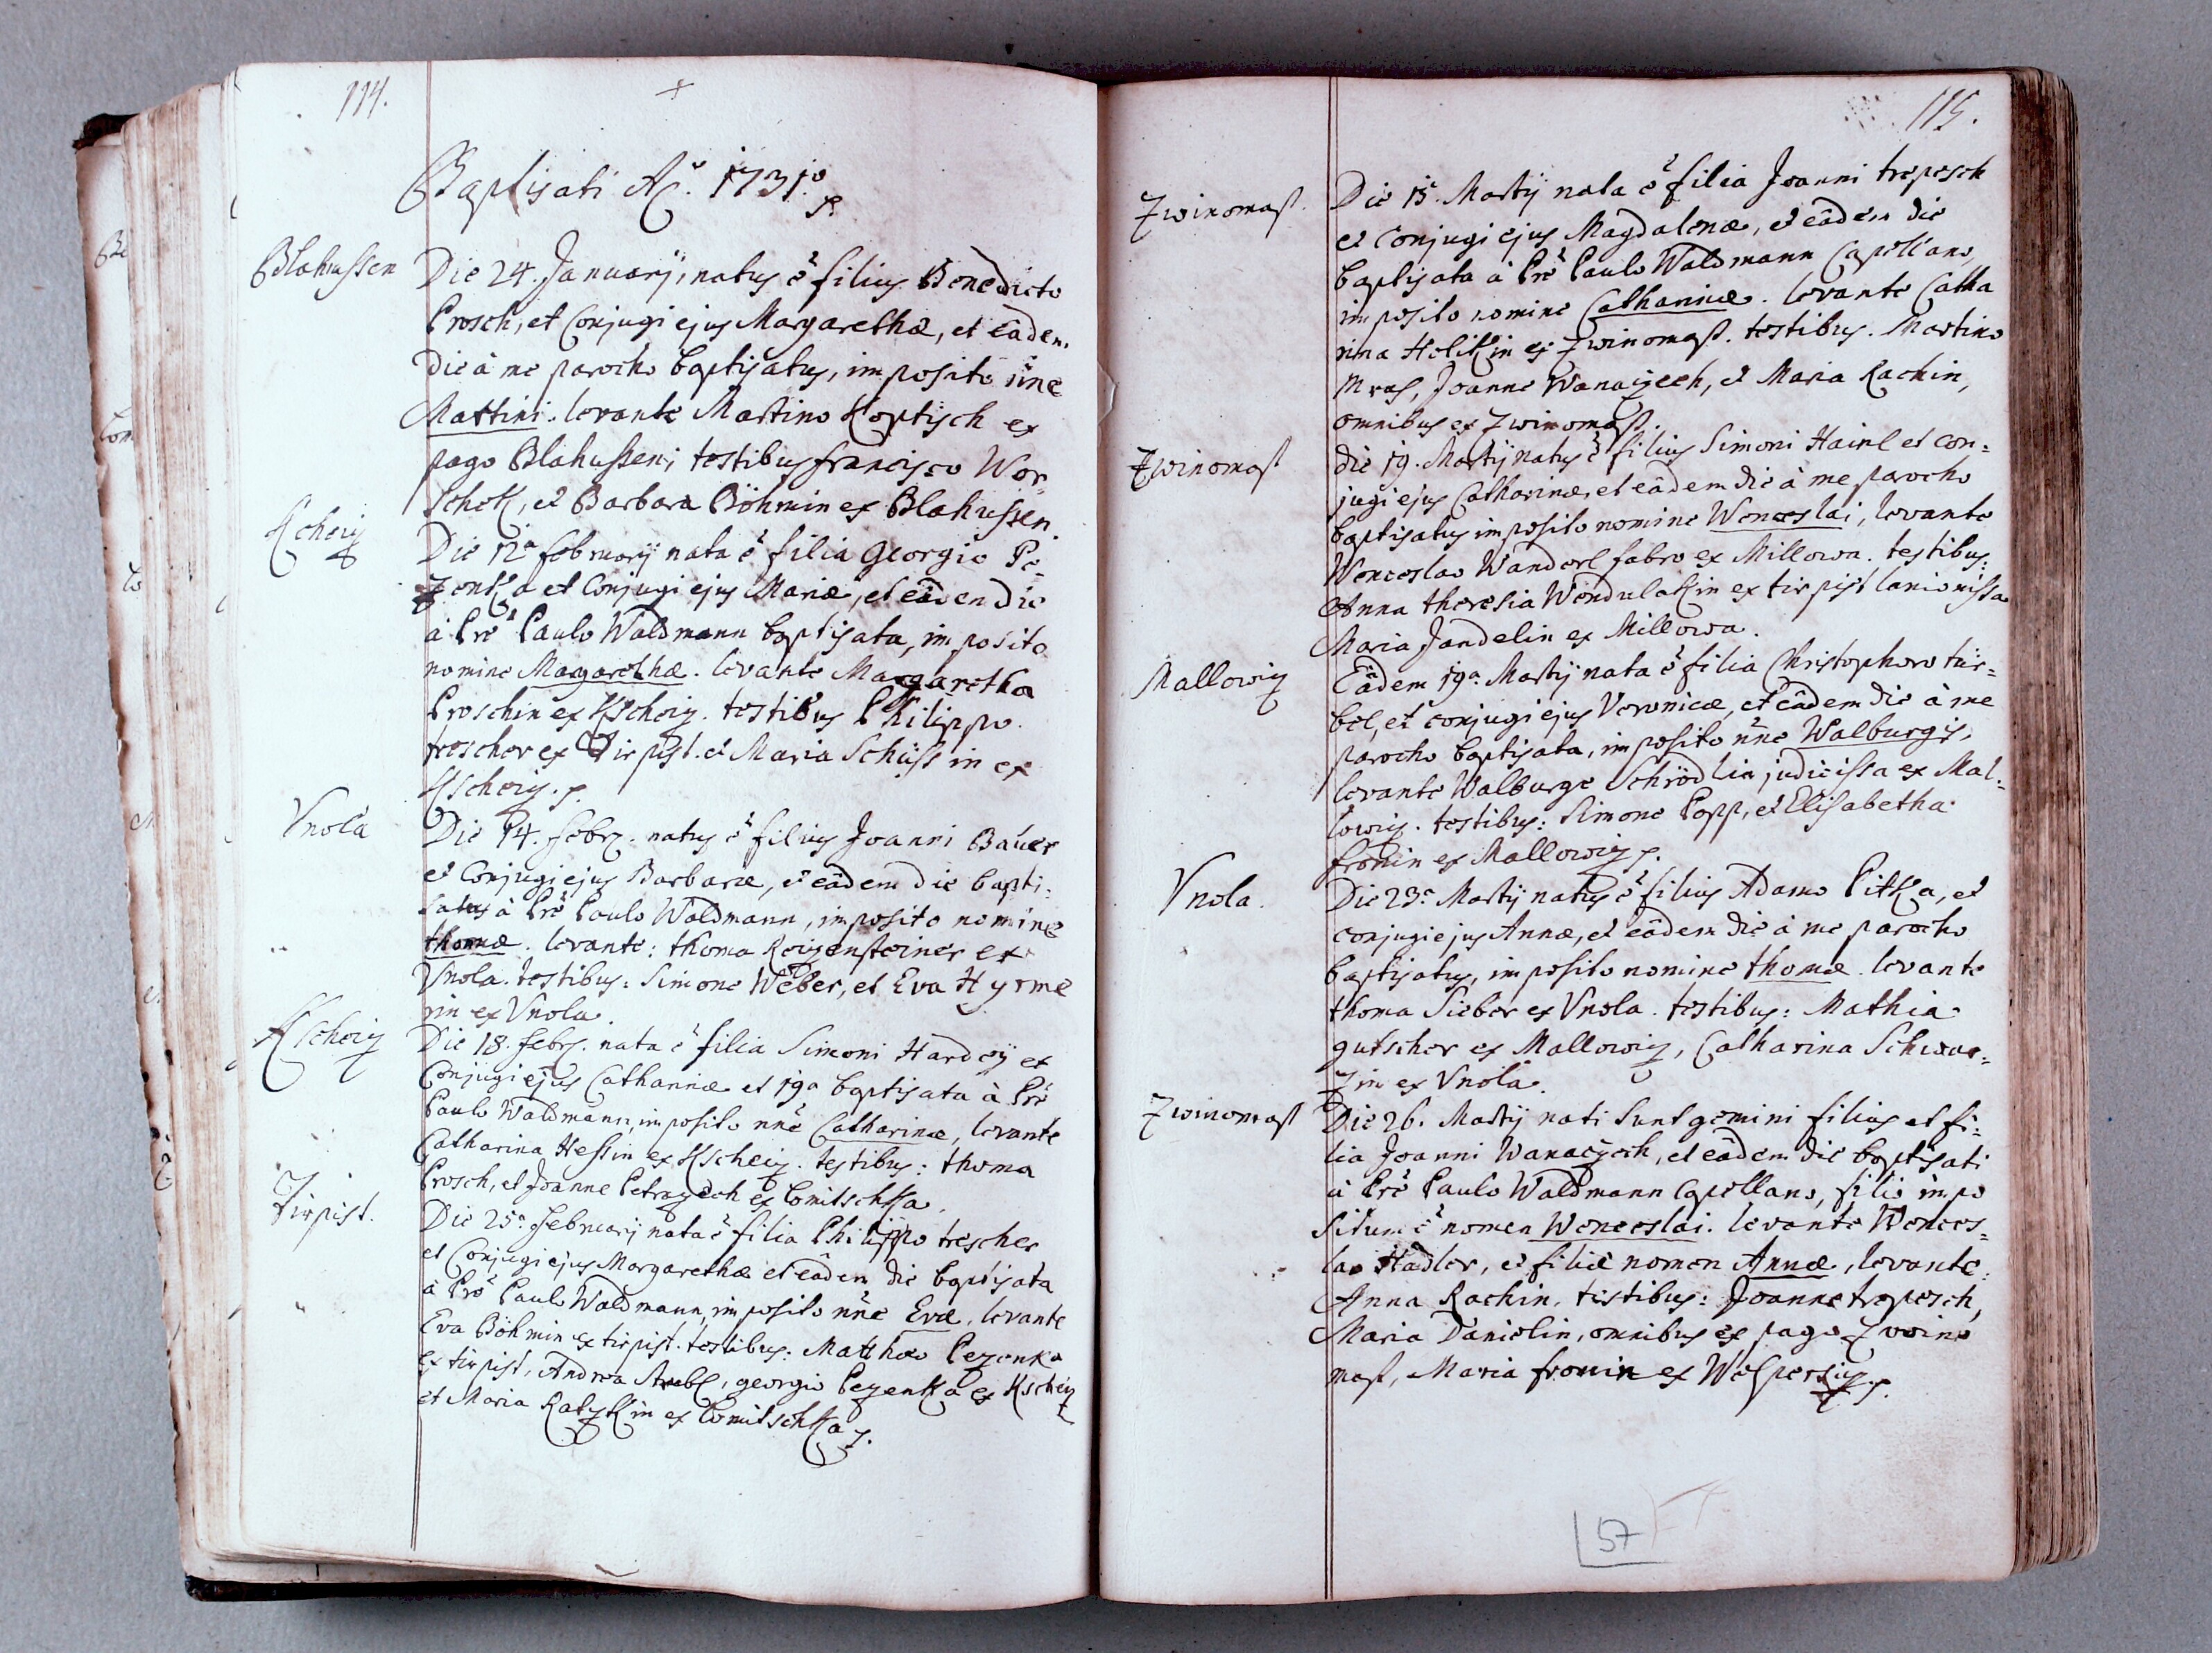 114.
Baptisati Aō. 1731º. p.
Blahussen
Die 24. Januarij, natus ē filius Benedicto
Prosch, et Conjugi ejus Margarethæ, et eâdem
die à me parocho baptisatus, imposito nne
Martini. levante Martino Koptisch ex
pago Blahussen, testibus francisco Wor-
schek, et Barbara Böhmin ex Blahussen.
Kscheiz
Die 12ª februarij nata ē filia Georgio Pe-
zenka et Conjugi ejus Mariæ, et eâdem die
à Prē Paulo Waldmann baptisata, imposito
nomine Margarethæ. levante Margaretha
Proschin ex Kscheiz. testibus Philippo
troscher ex Tirpist. et Maria Schüssin ex
Kscheiz. p.
Vnola
Die 14. febr. natus ē filius Joanni Bauer
et Conjugi ejus Barbaræ, et eâdem die bapti:
satus à Prē Paulo Waldmann, imposito nomine
thomæ. levante: thoma Reizensteiner ex
Vnola. testibus: Simone Weber, et Eva Hyrme
rin ex Vnola.
Kscheiz
Die 18. febr. nata ē filia Simoni Hardey et
Conjugi ejus Catharinæ et 19ª baptisata à Prē
Paulo Waldmann, imposito nnē Catharinæ, levante
Catharina Hesslin ex Kscheiz. testibus: thoma
Prosch, et Joanne Petrazech ex Comitschka.
Tirpist.
Die 25ª Februarij nata ē filia Philippo trescher
et Conjugi ejus Margarethæ et eâdem die baptisata
à Prē Paulo Waldmann, imposito nne Evæ, levante
Eva Böhmin ex tirpist. testibus: Matthæo Pezenka
ex tirpist, Andrea, georgio Pezenka ex Kscheiz
et Maria Ratzkin ex Comitschka p.
115.
Zwinomast.
Die 15ª Martij nata ē filia Joanni tropesch
et Conjugi ejus Magdalenæ, et eâdem die
baptisata à Prē Paulo Waldmann Capellano,
imposito nomine Catharinæ. levante Catha
rina Holikin ex Zwinomast. testibus. Martino
Mras, Joanne Wanaczech, et Maria Rachin,
omnibus ex Zwinomast.
Zwinomast
die 19. Martij natus ē filius Simoni Hainl et con=
jugi ejus Catharinæ, et eâdem die à me parocho
baptisatus imposito nomine Wenceslai, levante
Wenceslao Wanderl fabro ex Millowa. testibus:
Anna theresia Wondulakin ex tirpist lanionissa
Maria Jandelin ex Millowa.
Mallowiz
Eâdem 19ª. Martij nata ē filia Christophoro tür=
bel, et conjugi ejus Veronicæ, et eâdem die à me
parocho baptisata, imposito nne Walburgis,
levante Walburge Schrödlin judicissa ex Mal=
lowiz. testibus: Simone Popp, et Elisabetha
fronin ex Mallowiz p.
Vnola.
Die 23ª Martij natus ē filius Adamo Pitka, et
conjugi ejus Annæ, et eâdem die à me parocho
baptisatus, imposito nomine thomæ. levante
thoma Sieber ex Vnola. testibus: Mathia
gutscher ex Mallowiz, Catharina Schwar=
zin ex Vnola.
Zwinomast
Die 26. Martij nati sunt gemini filius et fi=
lia Joanni Wanaczech, et eâdem die baptisati
à Prē Paulo Waldmann Capellano, filio impo
situm ē nomen Wenceslai. levante Wences=
lao Stadler, et filiæ nomen Annæ, levante
Anna Rachin. testibus: Joanne tropesch,
Maria Danielin, omnibus ex pago Zwino
mast, Maria fronin ex Wolpersiz p.
57